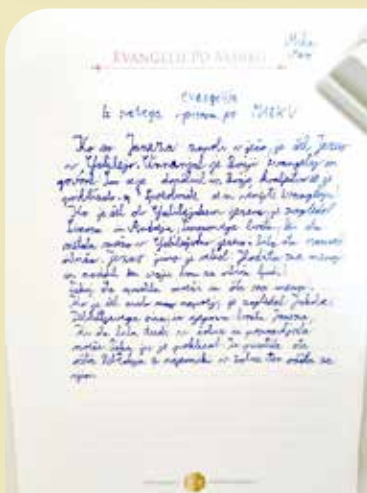 Miha
EVANGELIJ PO MARKU
evangelija
Iz svetega pisma po MARKU
Ko so Janeza zaprli v ječo, je šel Jezus
v Galilejo. Oznanjal je Božji evangelij in
govoril: Čas se je dopolnil in Božje kraljestvo se je
približalo. Spreobrnite se in verujte evangeliju!
Ko je šel ob Galilejskem jezeru, je zagledal
Simona in Andreja, Simonovega brata, ko sta
metala mrežo v Galilejsko jezero. Bila sta namreč
ribiča. Jezus jima je rekel: Hodita za menoj
in naredil vaju bom za ribiča ljudi!
Takoj sta pustila mreže in šla za
Ko je šel malo naprej, je zagledal Jakoba,
Zebedejevega sina, in njegovega brata Janeza,
ki sta bila tudi v čolnu in popravljala
mreže. Takoj ju je poklical. In pustila sta
očeta Zebedeja z najemniki v čolnu ter odšla za
njim.